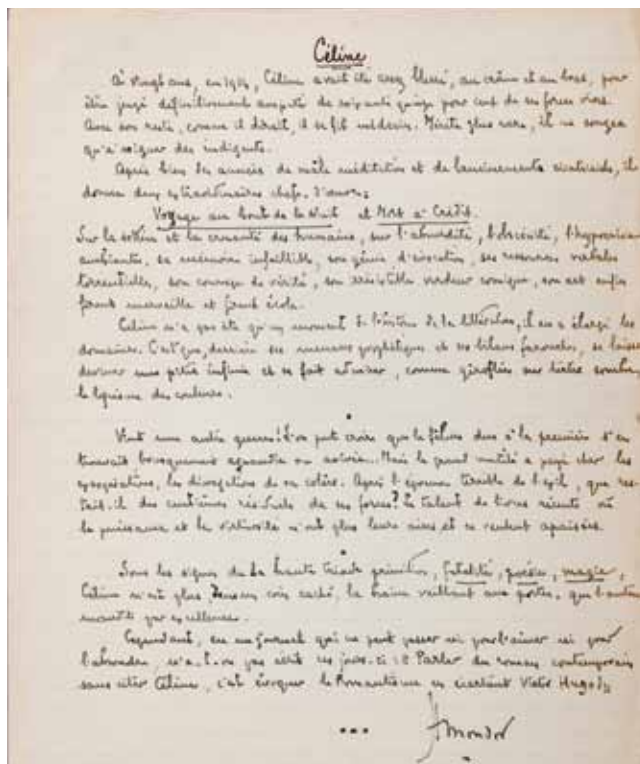 Céline
à vingt ans, en 1914, Céline avait été assez blessé, au crâne et au bras, pour
être jugé définitivement amputé de soixante quinze pour cent de ses forces vives.
Avec son reste, comme il dirait, il se fit médecin. Mérite plus rare, il ne songea
qu'à soigner des indigents.
Après bien des années de mâle méditation et de , il
donna deux extraordinaires chefs-d'œuvre :
Voyage au bout de la Nuit et Mort à Crédit.
Sur la sottise et la cruauté des humains, sur l'absurdité, l'obscénité, l'hypocrisie
ambiantes, sa mémoire infaillible, son génie d'exécution, ses ressources verbales
torrentielles, son courage de vérité, son irrésistible verdeur comique, son art enfin
firent merveille et firent école.
Céline n'a pas été qu'un moment de l'histoire de la littérature, il en a élargi les
domaines. C'est que, derrière ses menaces prophétiques et ses bilans farouches, se laisse
deviner une pitié infinie et se fait admirer, comme giroflées sur tertre sombre,
le lyrisme des couleurs.
Vint une autre guerre ! L'on put croire que le félure due à la première s'en
trouvait brusquement agrandie ou . Mais le grand mutilé a payé cher les
exagérations, les divagations de sa colère. Après l'épreuve terrible de l'exil, que res-
tait-il des centièmes résiduels de ses forces ? Le talent de livres récents où
la puissance et la virtuosité n'ont plus leurs aises et se veulent apaisées.
Sous les signes de la haute triade , fatalité, poésie, magie,
Céline n'est plus, dans un coin caché, la haine veillant aux portes, que l'auteur
maudit par excellence.
Cependant, en un journal qui ne peut passer ni pour l'aimer ni pour
l'absoudre, n'a-t-on pas écrit ces jours-ci : « Parler du roman contemporain
sans citer Céline, c'est évoquer le Romantisme en écartant Victor Hugo »
Mondor